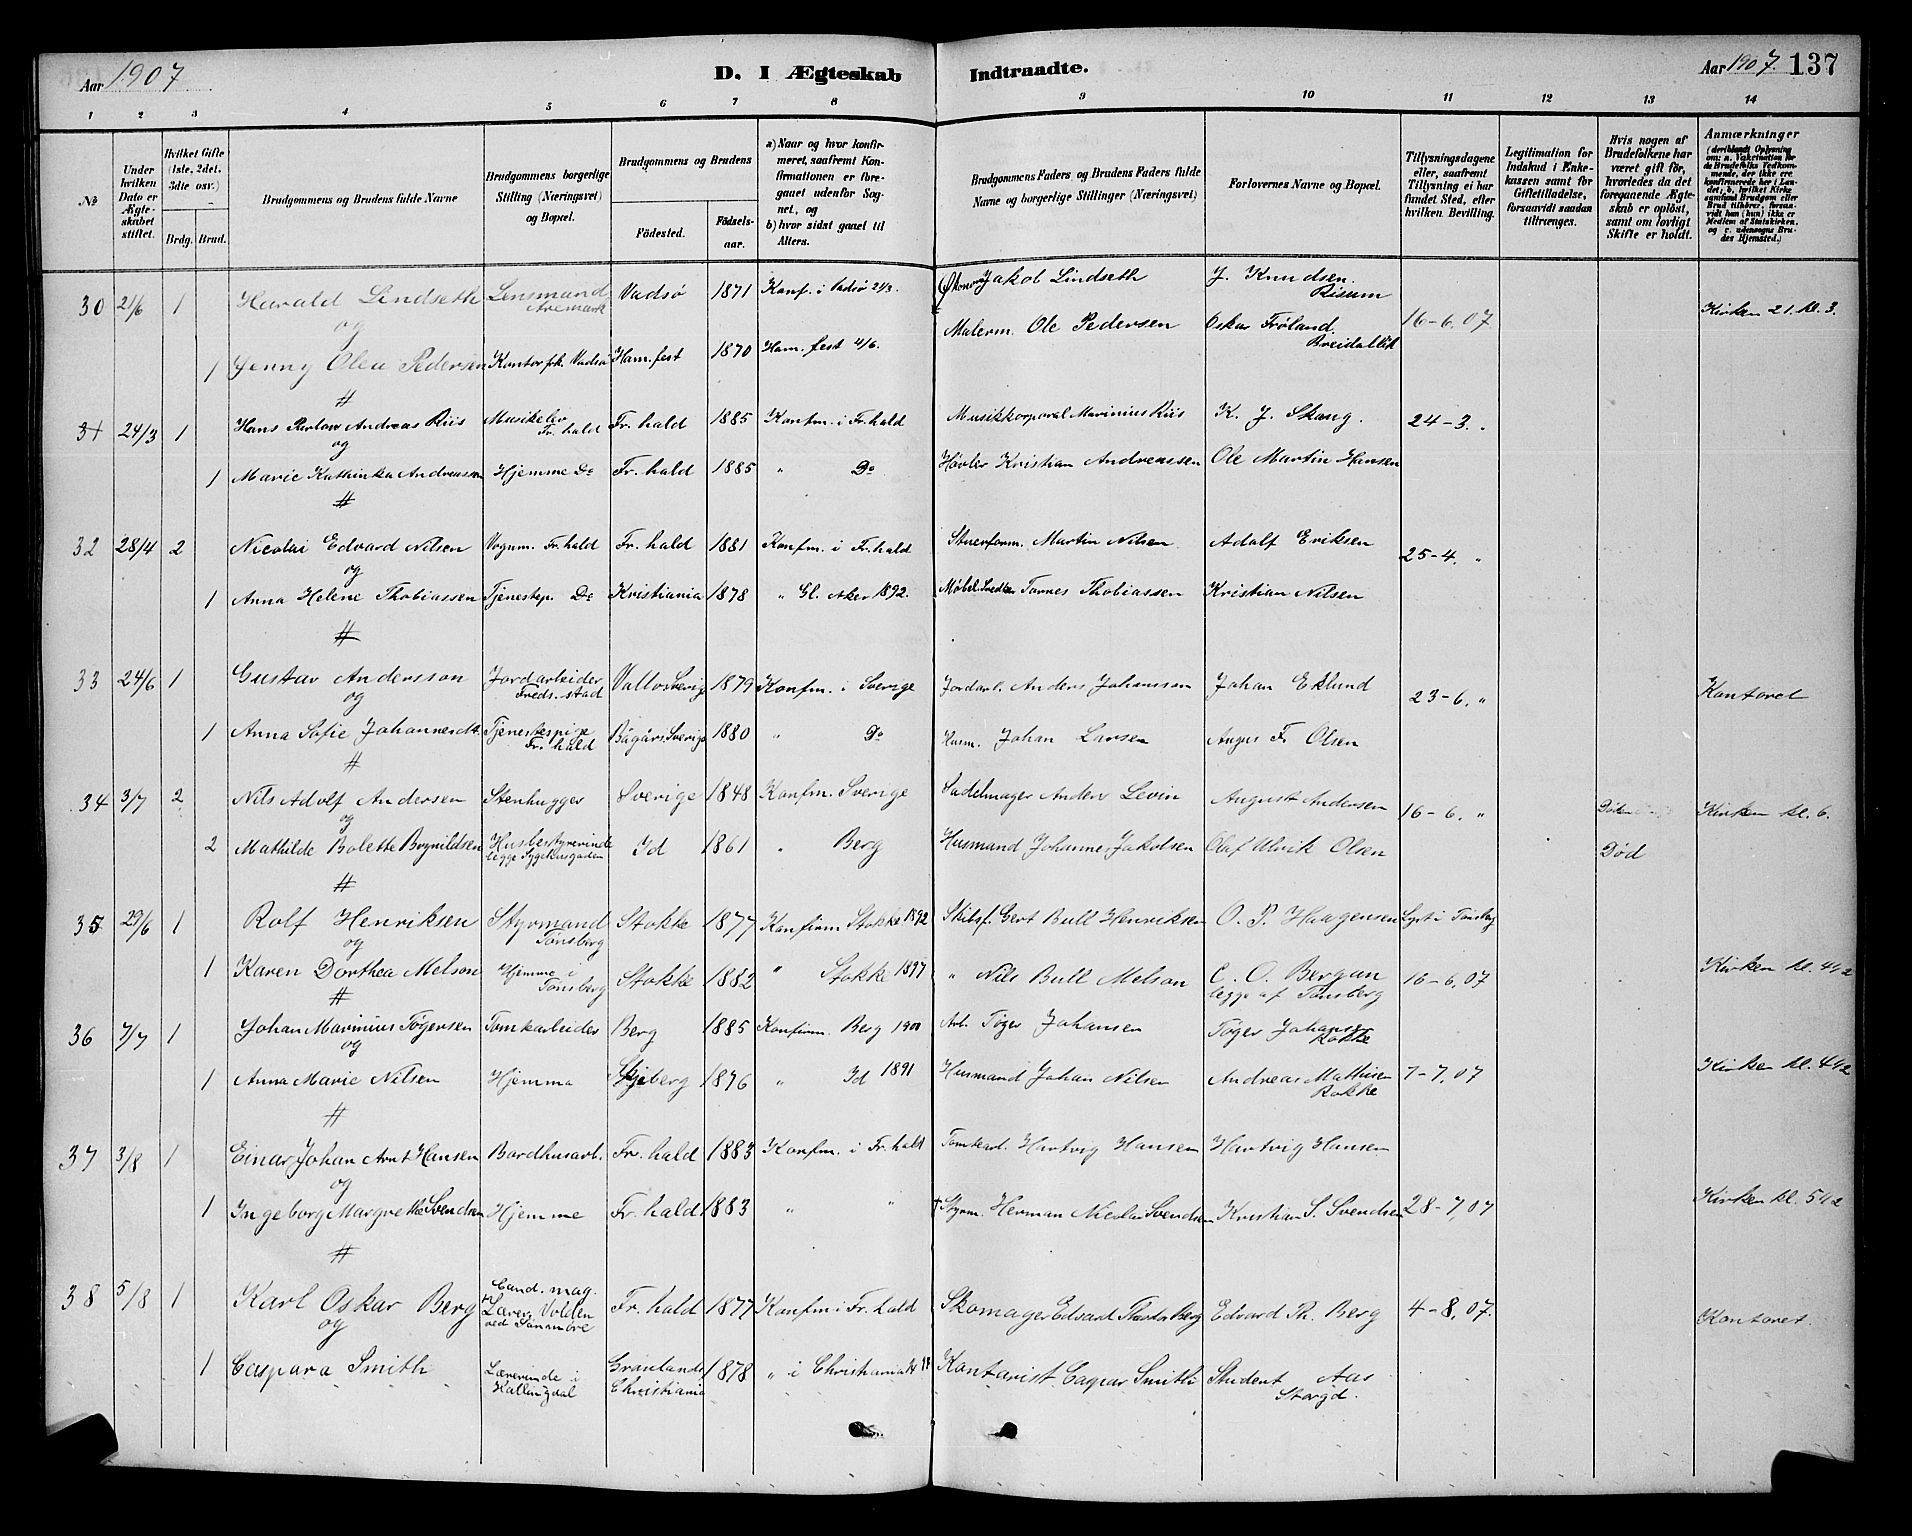 Aar 1907
D. I Ægteskab Indtraadte.
Aar 1907. 137
1 2 3 4 5 6 7 8 9 10 11 12 13 14
No
Under hvilken Dato er Ægteskabet stiftet.
Hvilket Gifte (1ste, 2det, 3dte osv.)
Brdg. Brud.
Brudgommens og Brudens fulde Navne
Brudgommens borgerlige Stilling (Næringsvei) og Bopæl.
Brudgommens og Brudens
Fødested.
Fødselsaar.
a) Naar og hvor konfirmeret, saafremt Konfirmationen er foregaaet udenfor Sognet, og
b) hvor sidst gaaet til Alters.
Brudgommens Faders og Brudens Faders fulde Navne og borgerlige Stillinger (Næringsvei)
Forlovernes Navne og Bopæl.
Tillysningsdagene eller, saafremt Tillysning ei har fundet Sted, efter hvilken Bevilling.
Legitimation for Indskud i Enkekassen samt for Giftetilladelse, forsaavidt saadan tiltrænges.
Hvis nogen af Brudefolkene har været gift før, hvorledes da det foregaaende Ægteskab er opløst, samt om lovligt Skifte er holdt.
Anmærkninger
30 21/6 1 Harald Lindseth Lensmand Aremark Vadsø 1871 Konf. i Vadsø 21/3. Økonom Jakob Lindseth J. Knudsen Risum 16-6.07 Kirken 21. kl. 3.
og
1 Jenny Olea Pedersen Kontorfrk. Vadsø Ham.fest 1870 Ham.fest 4/6. Malerm. Ole Pedersen Oskar Frøland.
#
31 24/3 1 Hans Andreas Riis Musikelev Fr. hald Fr. hald 1885 Konfm. i Fr. hald Musikkorporal Marinius Riis K. J. Skaug. 24-3. "
og
1 Marie Kathinka Andreassen Hjemme Do Fr. hald 1885 " Do Høvler Kristian Andreassen Ole Martin Hansen
#
32 28/4 2 Nicolai Edvard Nilsen Vognm. Fr. hald Fr. hald 1881 Konfm. i Fr. hald Martin Nilsen Adolf Eriksen 25-4. "
og
1 Anna Helene Thobiassen Tjenestep. Do Kristiania 1878 " Gl. Aker 1892. Thobiassen Kristian Nilsen
#
33 24/6 1 Gustav Andersson Jordarbeider Freds. stad Sverige 1879 Konfm. i Sverige Jordarb. Anders Johanssen Johan Eklund 23-6. " Kontoret
og
1 Anna Sofie Johannesdt. Tjenestepige Fr. hald Sverige 1880 " Do Husm. Johan Larsen Fr Olsen
#
34 3/7 2 Nils Adolf Andersen Stenhugger Sverige 1848 Konfm. Sverige Sadelmager Anders Levin August Andersen 16-6. " Kirken kl. 6.
og
2 Mathilde Bolette Brynildsen Husbestyrerinde begge Sygehusgaden Id 1861 " Berg Husmand Johannes Jakobsen Olaf Ulrik Olsen Død
#
35 29/6 1 Rolf Henriksen Styrmand Tønsberg Stokke 1877 Konfirm Stokke 1892 Skibsf. Gert Bull Henriksen O. P. Haagensen Lyst i Tønsbg
og
1 Karen Dorthea Melson Hjemme i Tønsberg Stokke 1882 " Stokke 1897 " Nils Bull Melson C. O. Bergan begge af Tønsberg 16-6.07 Kirken kl. 4 1/2
#
36 7/7 1 Johan Marinius Tøgersen Tomtearbeider Berg 1885 Konfirm. Berg 1900 Arb. Tøger Johansen Tøger Johansen Rokke
og
1 Anna Marie Nilsen Hjemme Skjeberg 1876 " Id 1891 Husmand Johan Nilsen Andreas Mathisen Rokke 7-7.07 Kirken kl. 4 1/2
#
37 3/8 1 Einar Johan Arnt Hansen Bordhusarb. Fr. hald 1883 Konfm. i Fr. hald Tomtearb. Hartvig Hansen Hartvig Hansen
og
1 Ingeborg Margrethe Svendsen Hjemme Fr. hald 1883 " " † Styrm. Herman Nicolai Svendsen Kristian S. Svendsen 28-7.07 Kirken kl. 5 1/2
#
38 5/8 1 Karl Oskar Berg Cand. mag. Lærer Volden ved Søndmøre Fr. hald 1877 Konfm i Fr. hald Skomager Edvard Berg Edvard Th. Berg 4-8.07. Kontoret.
og
1 Caspara Smith Lærerinde i Hallingdal Grønland Christiania 1878 " i Christiania Kontorist Caspar Smith Student Aas Storgd.